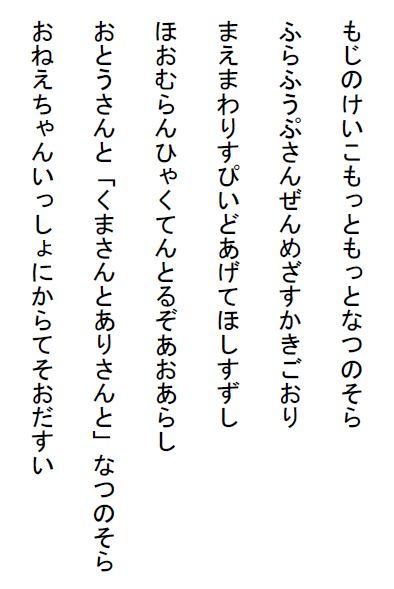 もじのけいこもっともっとなつのそら
ふらふうぷさんぜんめざすかきごおり
まえまわりすぴいどあげてほしすずし
ほおむらんひゃくてんとるぞあおあらし
おとうさんと「くまさんとありさんと」なつのそら
おねえちゃんいっしょにからてそおだすい